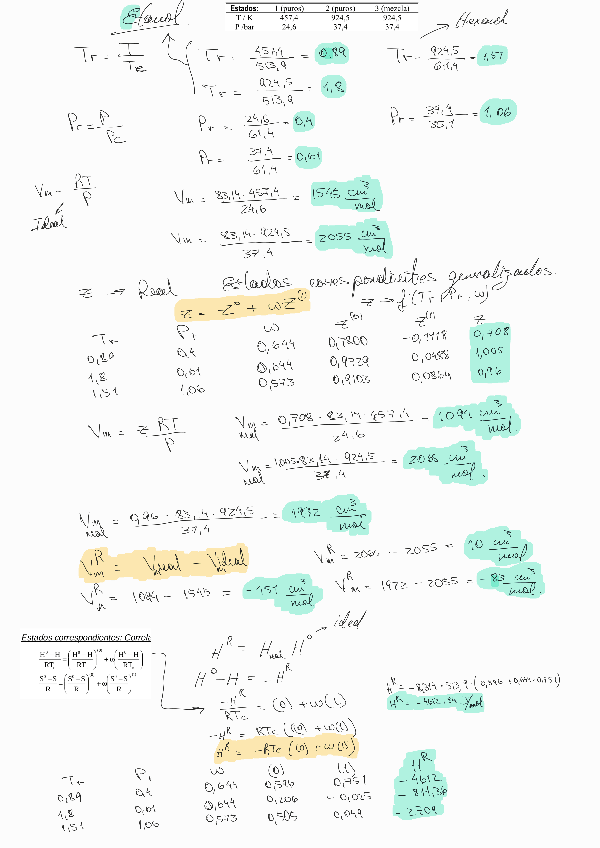 Etanol
Estados: 1 (puros) 2 (puros) 3 (mezcla)
T / K 457,4 924,5 924,5
P /bar 24,6 37,4 37,4
Tr = T / Tc
Tr = 457,4 / 513,9 = 0,89
Tr = 924,5 / 61,4 = 1,51
Tr = 924,5 / 513,9 = 1,8
Pr = P / Pc
Pr = 24,6 / 61,4 = 0,4
Pr = 37,4 / 35,1 = 1,06
Pr = 37,4 / 61,4 = 0,61
Vm = RT / P
Ideal
Vm = 83,14 · 457,4 / 24,6 = 1545 cm³/mol
Vm = 83,14 · 924,5 / 37,4 = 2055 cm³/mol
z → Real Estados correspondientes generalizados.
z = z⁰ + ωz⁽¹⁾ z → f(Tr, Pr, ω)
Tr Pr ω z⁽⁰⁾ z⁽¹⁾ z
0,89 0,4 0,644 0,7800 0,708
1,8 0,61 0,644 0,0488 1,005
1,51 1,06 0,573 0,9103 0,0864 0,96
Vm = z RT / P
Vm real = 0,708 · 83,14 · 457,4 / 24,6 = 1094 cm³/mol
Vm real = 1,005 · 83,14 · 924,5 / 37,4 = cm³/mol
Vm real = 0,96 · 83,14 · 924,5 / 37,4 = 1972 cm³/mol
Vmᴿ = Vreal − Videal
Vmᴿ = − 2055 = 10 cm³/mol
Vmᴿ = 1094 − 1545 = −451 cm³/mol
Vmᴿ = 1972 − 2055 = −83 cm³/mol
Estados correspondientes: Correla
Hᴿ = Hreal H⁰ ideal
H⁰ − H = −Hᴿ
−Hᴿ / RTc = (0) + ω(1)
−Hᴿ = RTc (0) + ω(1)
Hᴿ = −RTc (0) + ω(1)
Tr Pr ω (0) (1) Hᴿ
0,89 0,4 0,644 0,596 0,751 −4612
1,8 0,61 0,644 0,206 −0,025
1,51 1,06 0,573 0,505 0,049 −2709